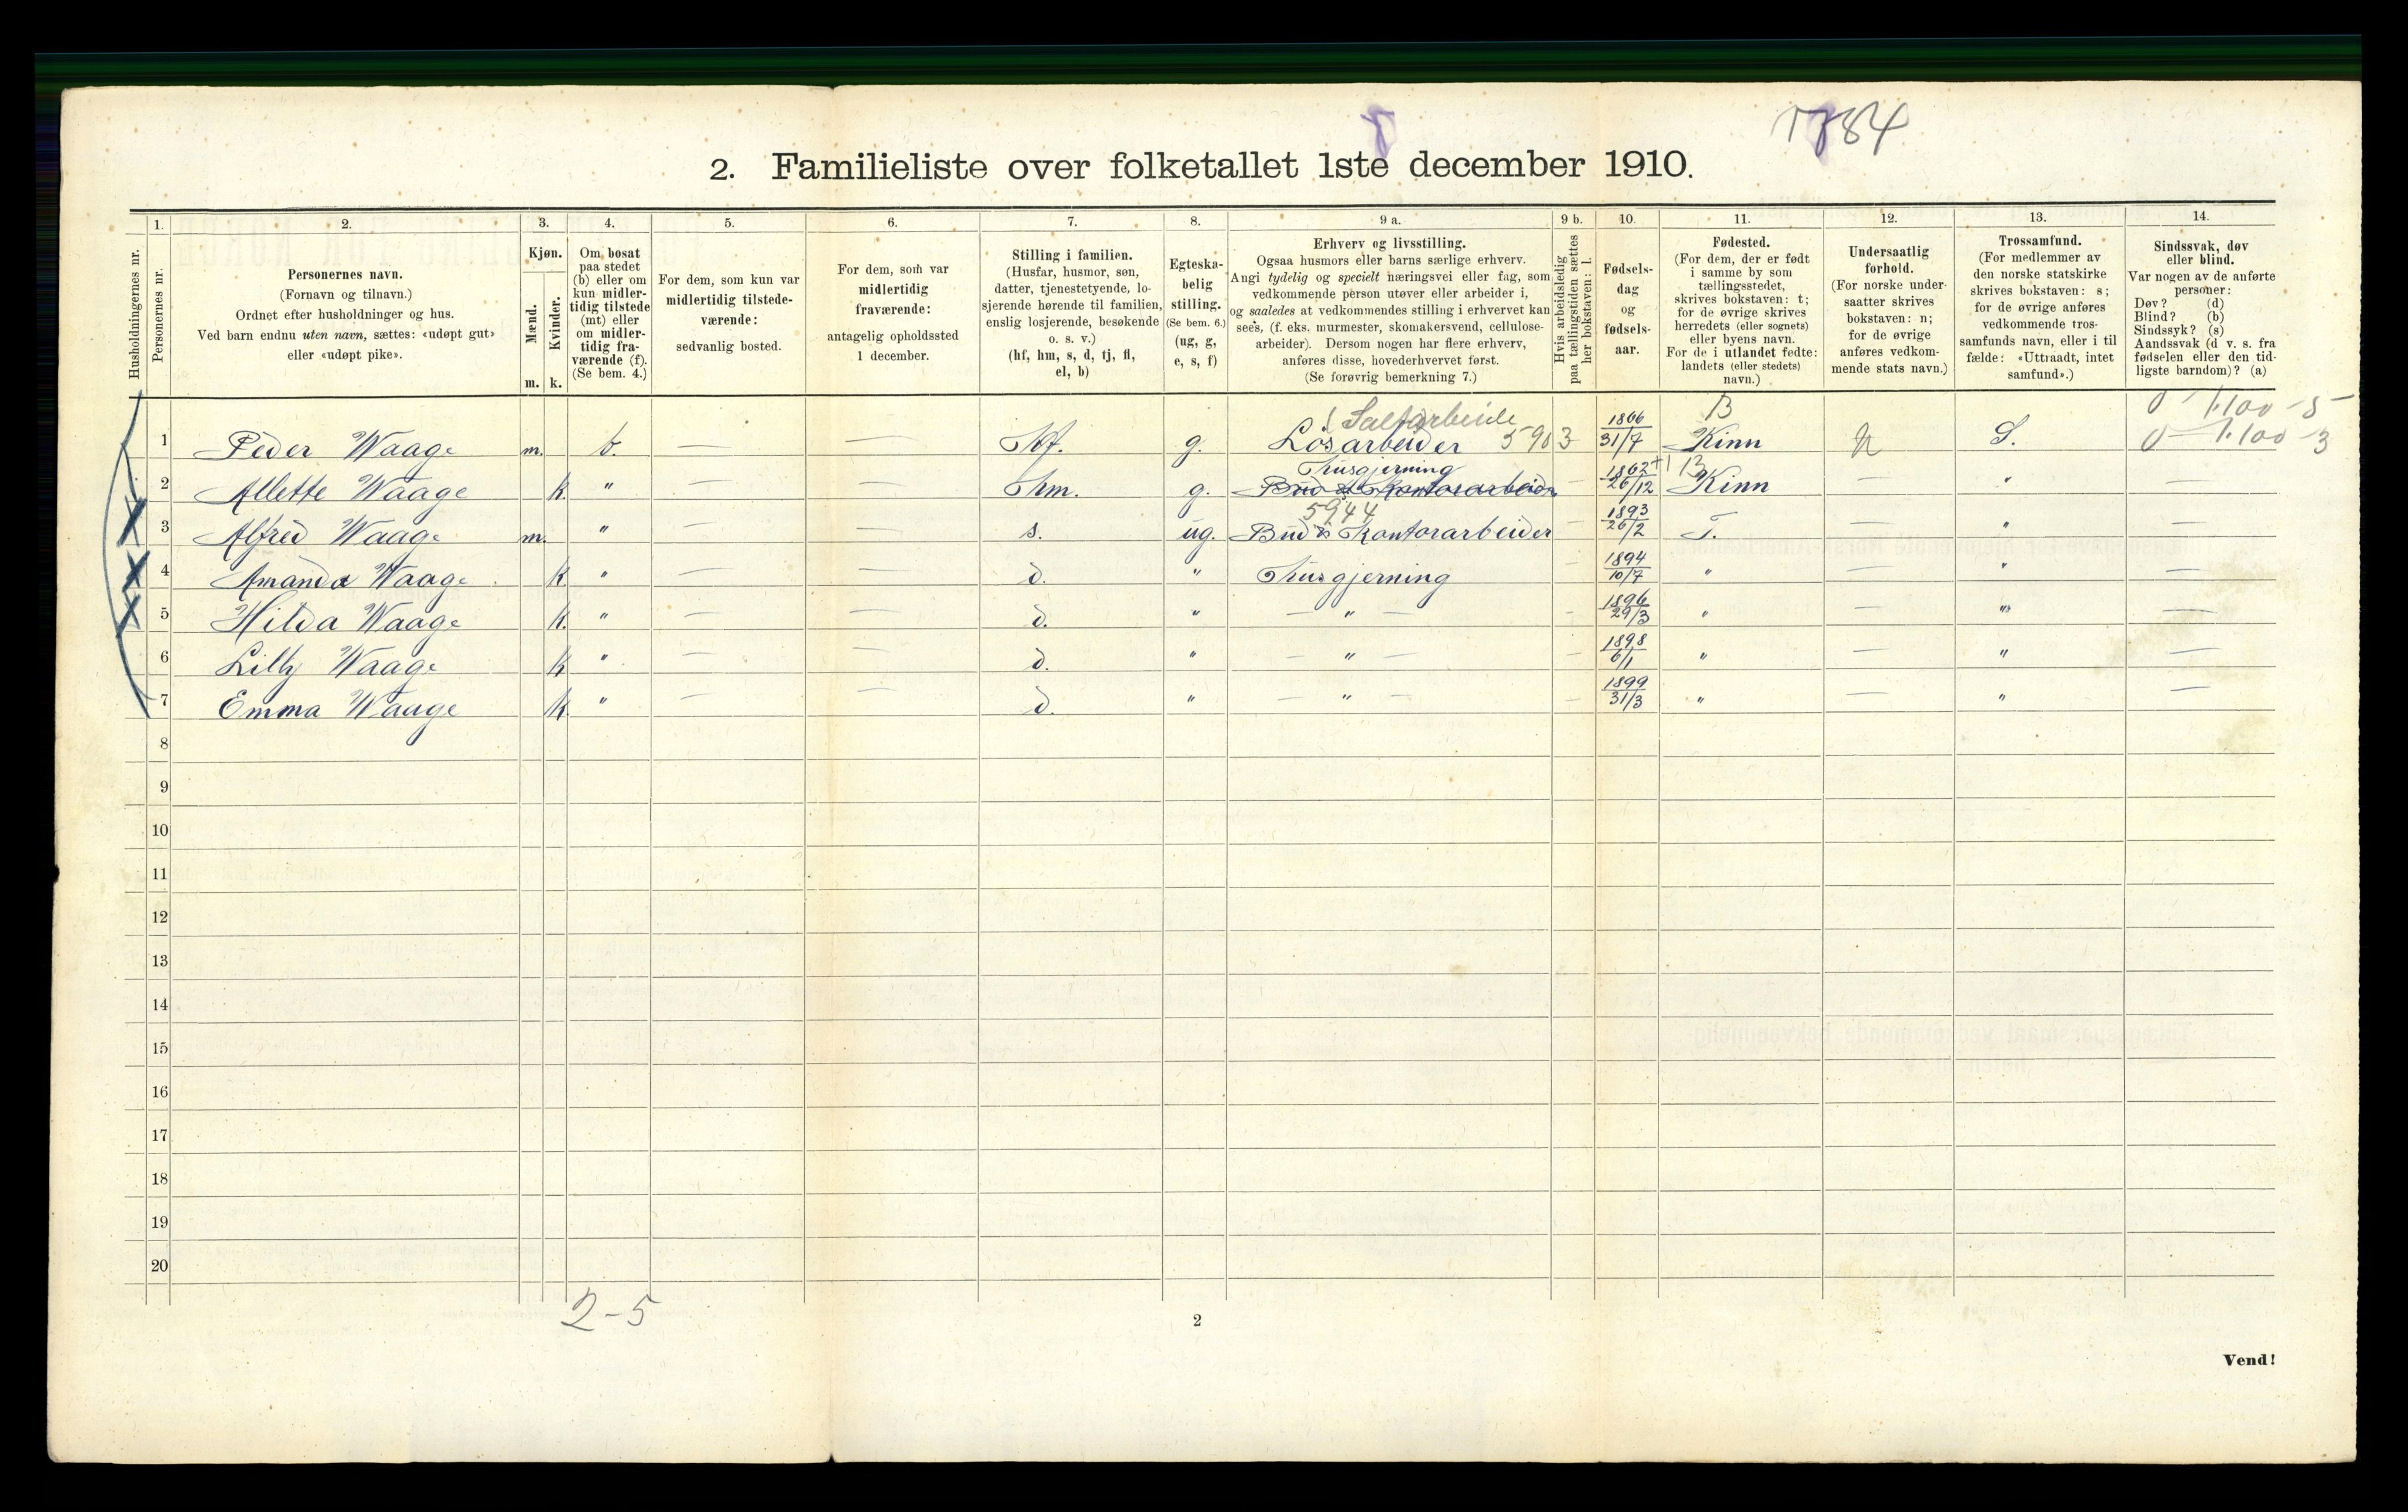 1784
8
2. Familieliste over folketallet 1ste december 1910.
Husholdningernes nr.
1. Personernes nr.
2. Personernes navn. (Fornavn og tilnavn.) Ordnet efter husholdninger og hus. Ved barn endnu uten navn, sættes: «udøpt gut» eller «udøpt pike».
3. Kjøn. Mænd. Kvinder. m. k.
4. Om bosat paa stedet (b) eller om kun midlertidig tilstede (mt) eller om midlertidig fraværende (f). (Se bem. 4.)
5. For dem, som kun var midlertidig tilstedeværende: sedvanlig bosted.
6. For dem, som var midlertidig fraværende: antagelig opholdssted 1 december.
7. Stilling i familien. (Husfar, husmor, søn, datter, tjenestetyende, losjerende hørende til familien, enslig losjerende, besøkende o. s. v.) (hf, hm, s, d, tj, fl, el, b)
8. Egteskabelig stilling. (Se bem. 6.) (ug, g, e, s, f)
9 a. Erhverv og livsstilling. Ogsaa husmors eller barns særlige erhverv. Angi tydelig og specielt næringsvei eller fag, som vedkommende person utøver eller arbeider i, og saaledes at vedkommendes stilling i erhvervet kan sees, (f. eks. murmester, skomakersvend, cellulosearbeider). Dersom nogen har flere erhverv, anføres disse, hovederhvervet først. (Se forøvrig bemerkning 7.)
9 b. Hvis arbeidsledig paa tællingstiden sættes her bokstaven: l.
10. Fødselsdag og fødselsaar.
11. Fødested. (For dem, der er født i samme by som tællingsstedet, skrives bokstaven: t; for de øvrige skrives herredets (eller sognets) eller byens navn. For de i utlandet fødte: landets (eller stedets) navn.)
12. Undersaatlig forhold. (For norske undersaatter skrives bokstaven: n; for de øvrige anføres vedkommende stats navn.)
13. Trossamfund. (For medlemmer av den norske statskirke skrives bokstaven: s; for de øvrige anføres vedkommende trossamfunds navn, eller i tilfælde: «Uttraadt, intet samfund».)
14. Sindssvak, døv eller blind. Var nogen av de anførte personer: Døv? (d) Blind? (b) Sindssyk? (s) Aandssvak (d. v. s. fra fødselen eller den tidligste barndom)? (a)
1 Peder Waage m. b. — — Hf. g. (Saltarbeide Løsarbeider 5903 1866 31/7 B Kinn n S. 0 1.100-5 0 1.100-3
2 Allette Waage k. " — — Hm. g. Husgjerning Bud & Kontorarbeider — 1862 26/12 B Kinn — " —
3 Alfred Waage m. " — — s. ug. 5944 Bud & Kontorarbeider — 1893 26/2 T. — " —
4 Amanda Waage k. " — — d. " Husgjerning — 1894 10/7 " — " —
5 Hilda Waage k. " — — d. " — " — — 1896 29/3 " — " —
6 Lilly Waage k " — — d. " — " — — 1898 6/1 " — " —
7 Emma Waage k. " — — d. " — " — — 1899 31/3 " — " —
8
9
10
11
12
13
14
15
16
17
18
19
20
2-5
2
Vend!